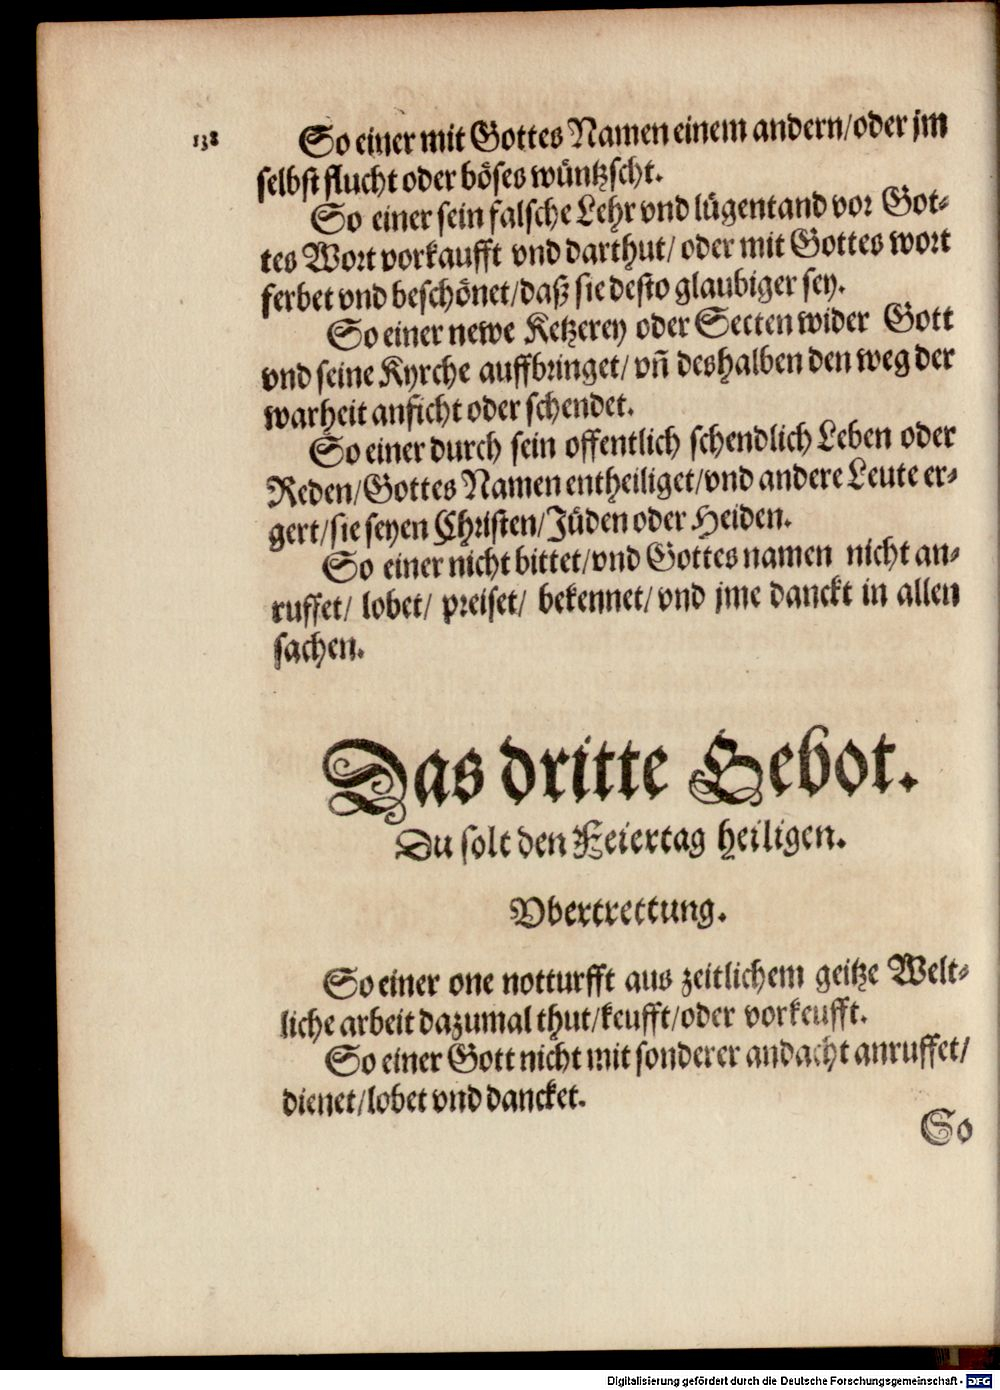 138
So einer mit Gottes Namen einem andern/oder jm
selbst flucht oder böses wüntzscht.
So einer sein falsche Lehr vnd lügentand vor Got-
tes Wort vorkaufft vnd darthut/ oder mit Gottes wort
ferbet vnd beschönet/daß sie desto glaubiger sey.
So einer newe Ketzerey oder Secten wider Gott
vnd seine Kyrche auffbringet/ vñ deshalben den weg der
warheit anficht oder schendet.
So einer durch sein offentlich schendlich Leben oder
Reden/Gottes Namen entheiliget/vnd andere Leute er-
gert/sie seyen Christen/Jüden oder Heiden.
So einer nicht bittet/vnd Gottes namen nicht an-
ruffet/ lobet/ preiset/ bekennet/ vnd jme danckt in allen
sachen.
Das dritte Gebot.
Du solt den Feiertag heiligen.
Vbertrettung.
So einer one notturfft aus zeitlichem geitze Welt-
liche arbeit dazumal thut/keufft/oder vorkeufft.
So einer Gott nicht mit sonderer andacht anruffet/
dienet/lobet vnd dancket.
So
Digitalisierung gefördert durch die Deutsche Forschungsgemeinschaft - DFG